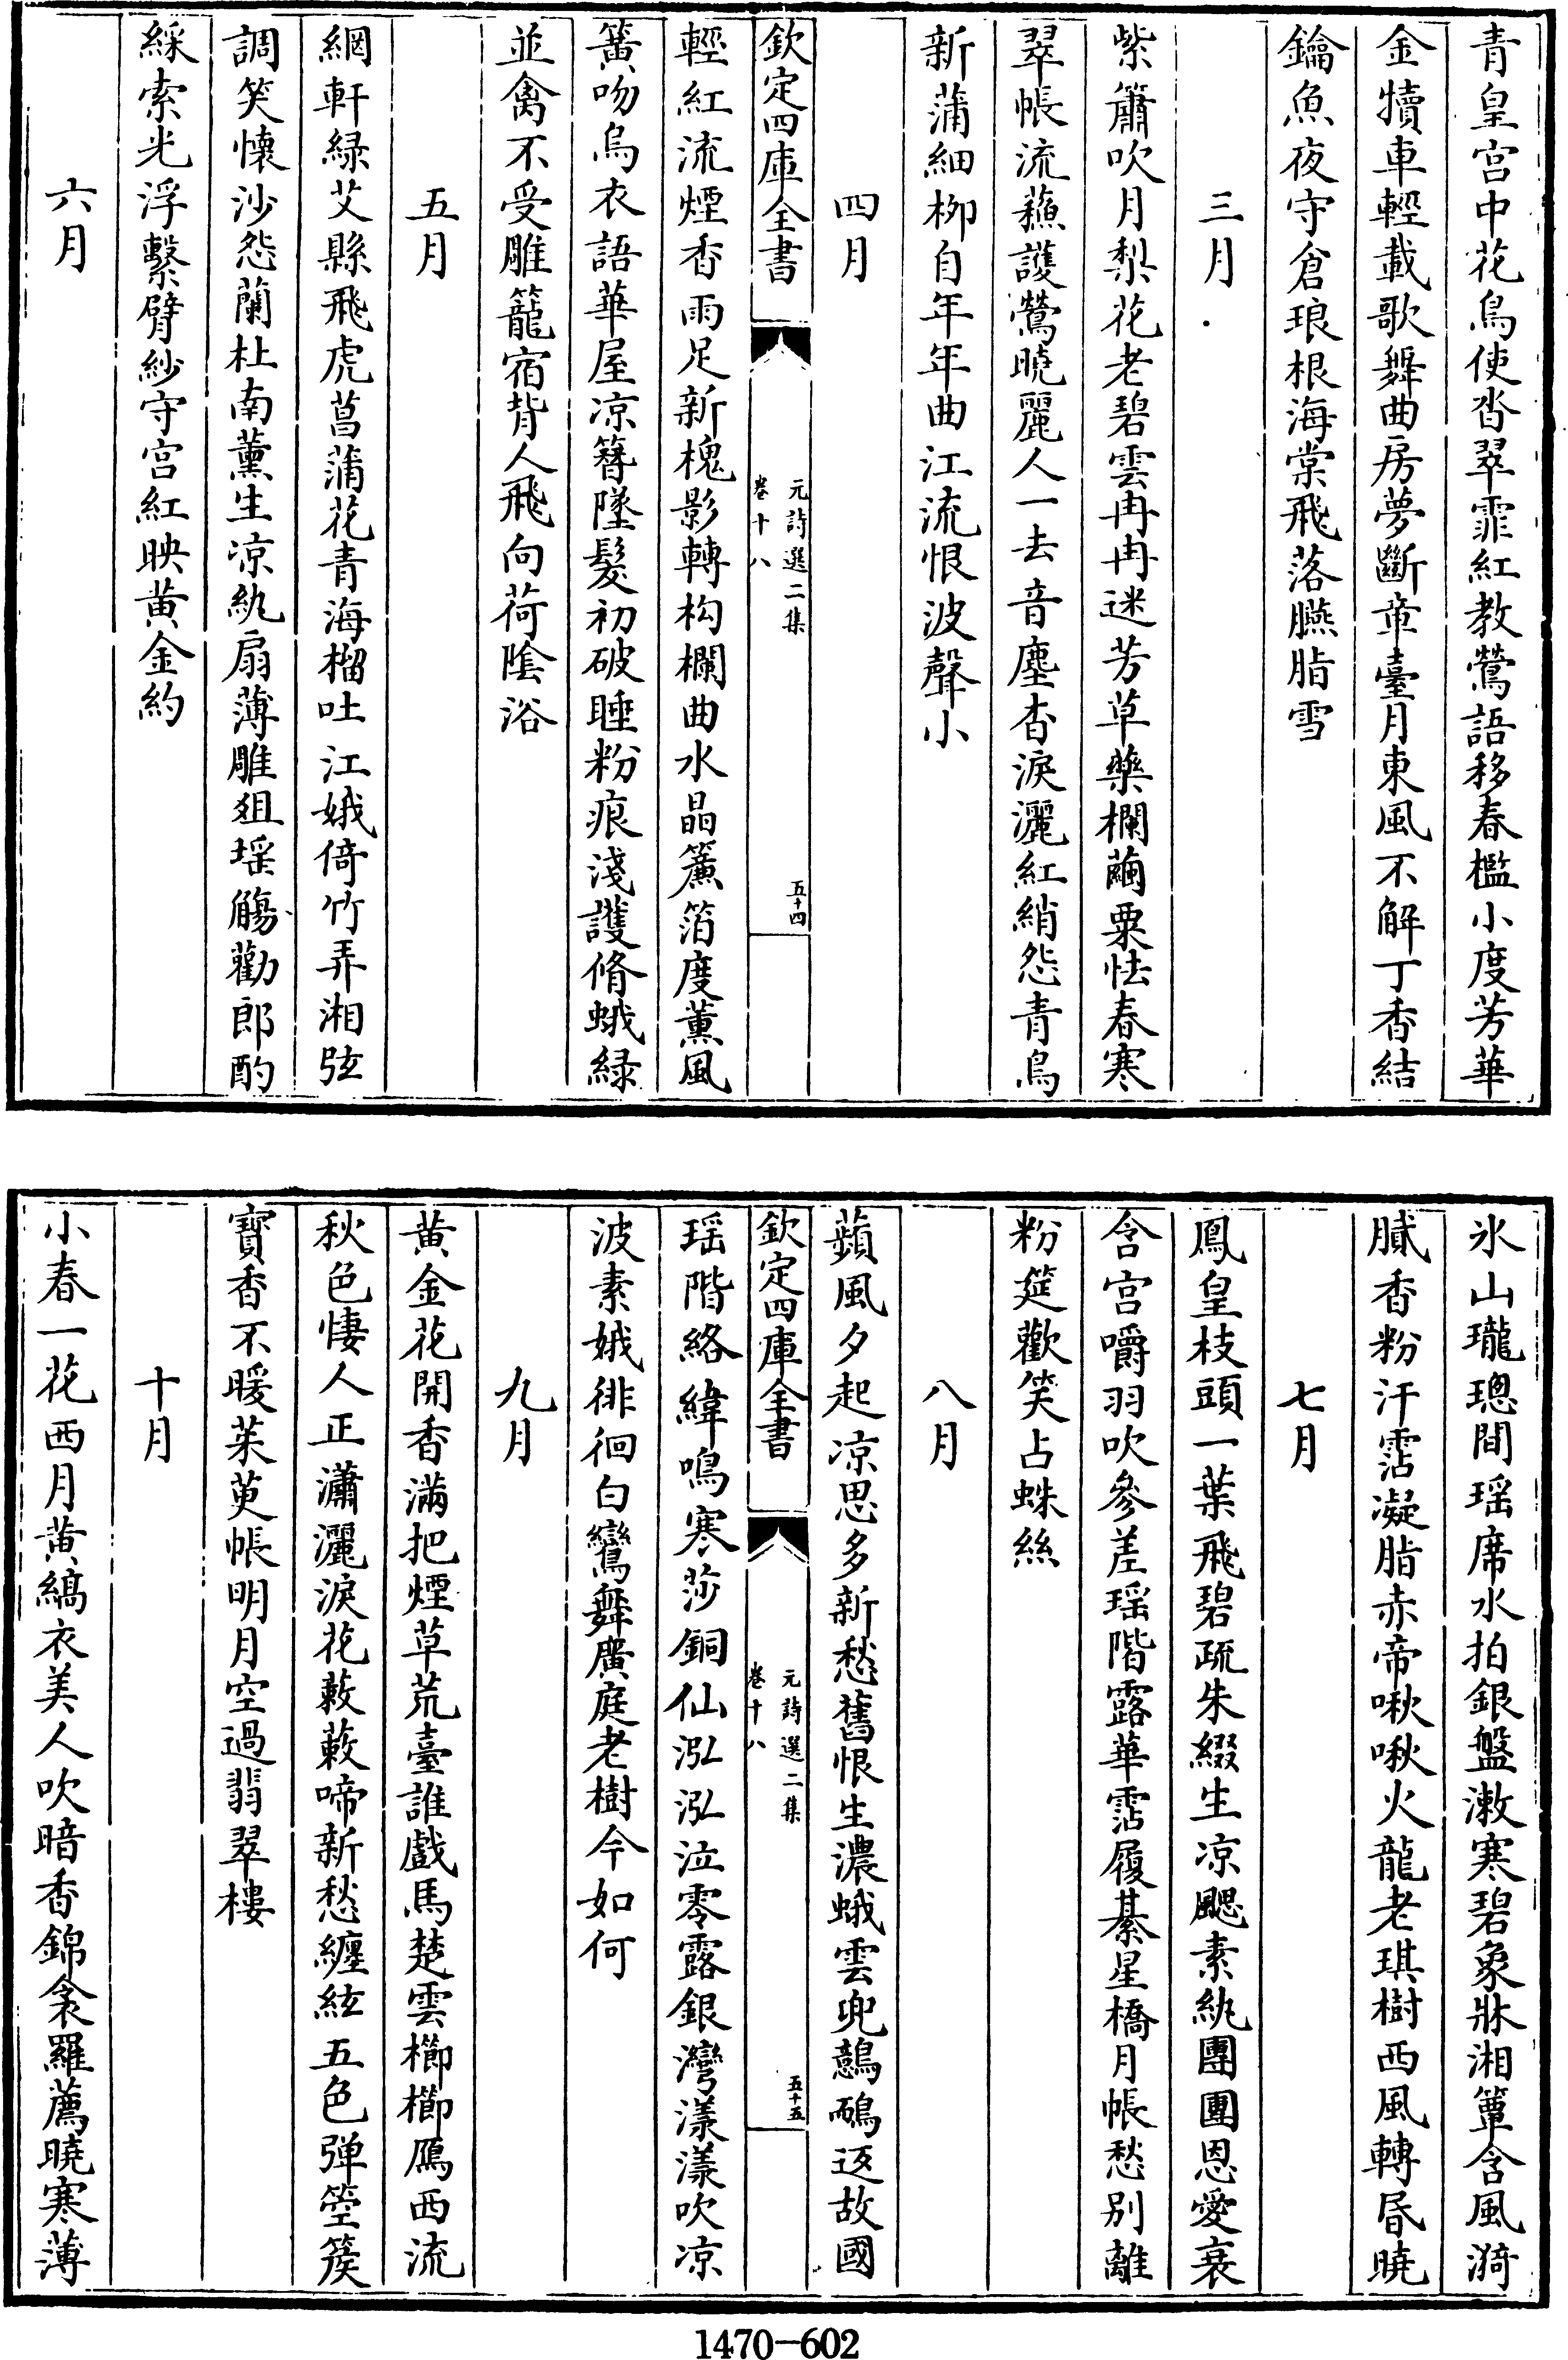 青皇宫中花鳥使沓翠霏紅教鶯語移春檻小度芳華
金犢車輕載歌舞曲房夢斷章臺月東風不解丁香結
鑰魚夜守倉琅根海棠飛落臙脂雪
三月
紫簫吹月梨花老碧雲冉冉迷芳草藥欄繭粟怯春寒
翠帳流蘓護鶯曉麗人一去音塵杳淚灑紅綃怨青鳥
新蒲細栁自年年曲江流恨波聲小
四月
欽定四庫全書
元詩選二集
卷十八
五十四
輕紅流煙香雨足新槐影轉构欄曲水晶簾箔度薰風
簧吻烏衣語華屋凉簪墜髮初破睡粉痕淺護脩蛾緑
並禽不受雕籠宿背人飛向荷陰浴
五月
網軒緑艾縣飛虎菖蒲花青海榴吐江娥倚竹弄湘弦
調笑懷沙怨蘭杜南薰生凉紈扇薄雕俎瑶觴勸郎酌
綵索光浮繫臂紗守宫紅映黄金約
六月
氷山瓏璁間瑶席水拍銀盤漱寒碧象牀湘簟含風漪
膩香粉汗霑凝脂赤帝啾啾火龍老琪樹西風轉昏曉
七月
鳳皇枝頭一葉飛碧疏朱綴生凉颸素紈團團恩愛衰
含宫嚼羽吹參差瑶階露華霑履綦星橋月帳愁别離
粉筵歡笑占蛛絲
八月
蘋風夕起凉思多新愁舊恨生濃蛾雲兜鷾鴯返故國
欽定四庫全書
元詩選二集
卷十八
五十五
瑶階絡緯鳴寒莎銅仙泓泓泣零露銀灣漾漾吹凉
波素娥徘徊白鸞舞廣庭老樹今如何
九月
黄金花開香滿把煙草荒臺誰戲馬楚雲櫛櫛鴈西流
秋色悽人正瀟灑淚花蔌蔌啼新愁纏絃五色弹箜篌
寶香不暖茱萸帳明月空過翡翠樓
十月
小春一花西月黄縞衣美人吹暗香錦衾羅薦曉寒薄
1470—602